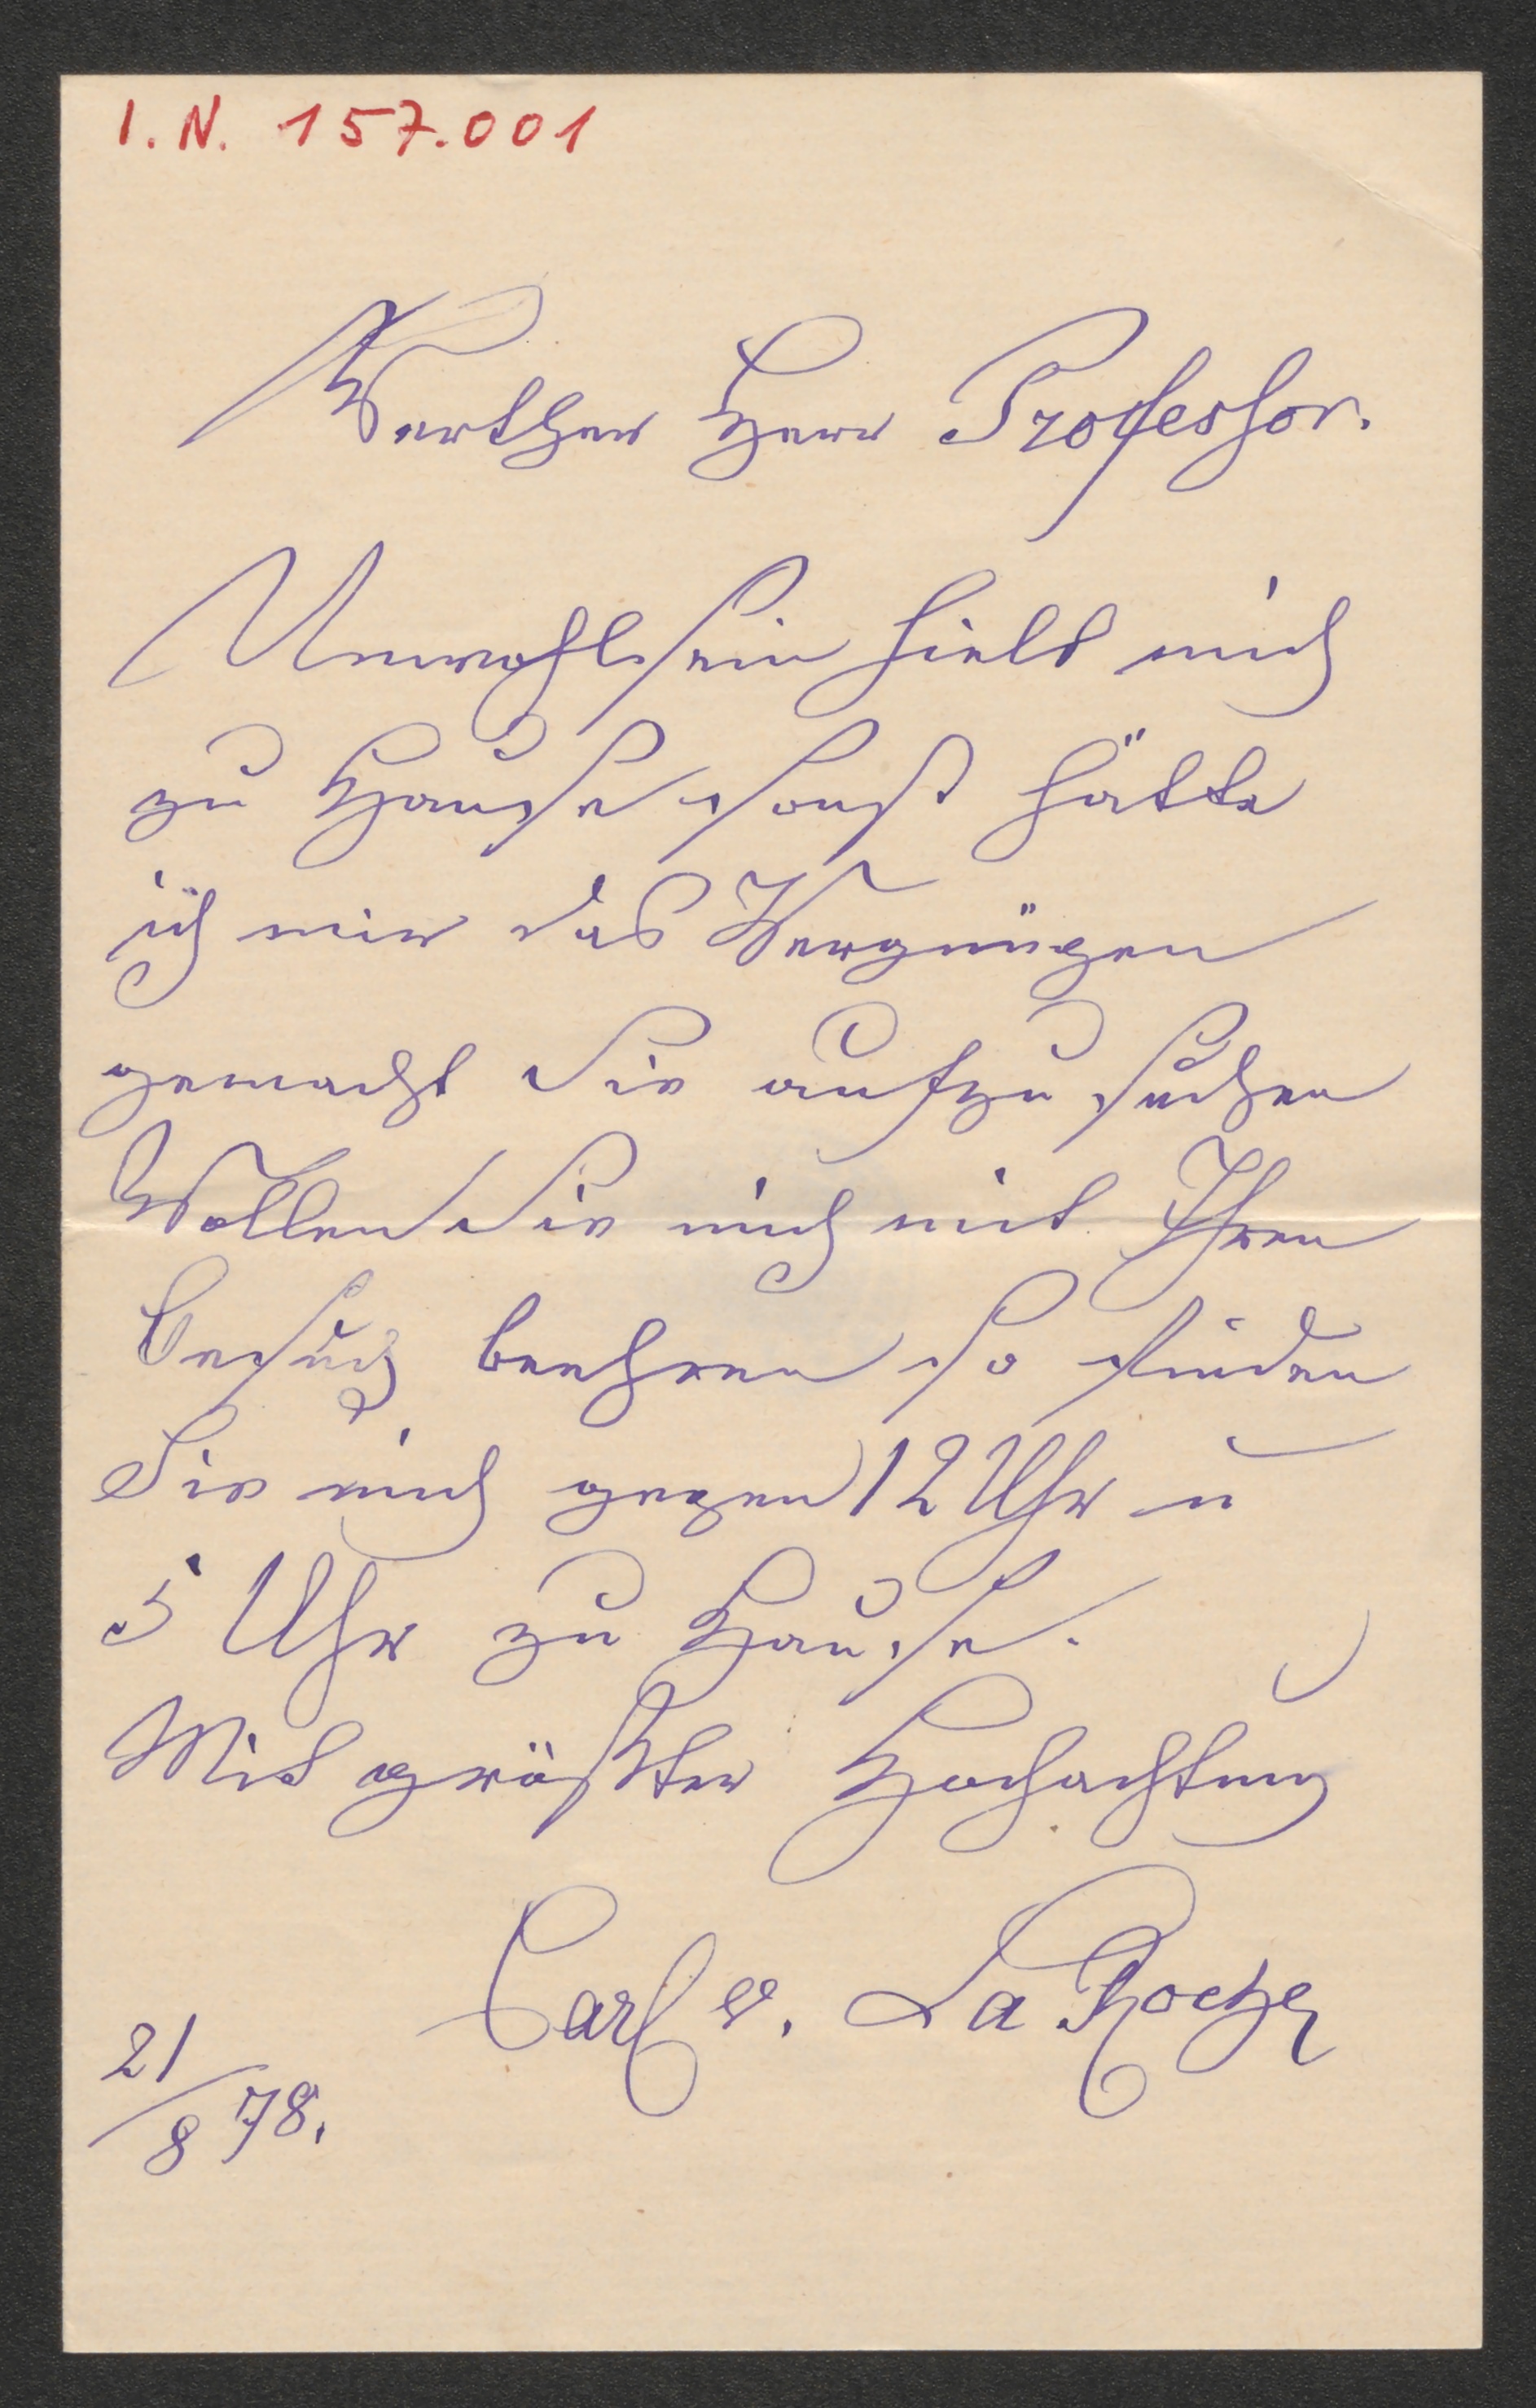 I.N. 157.001
Werther Herr Professor.
Unwohlsein hielt mich
zu Hause sonst hätte
ich mir das Vergnügen
gemacht Sie aufzusuchen
Wollen Sie mich mit Ihren
Besuch beehren so finden
Sie mich gegen 12 Uhr u
5 Uhr zu Hause.
Mit größter Hochachtung
Carl v. La Roche
21/8 78.